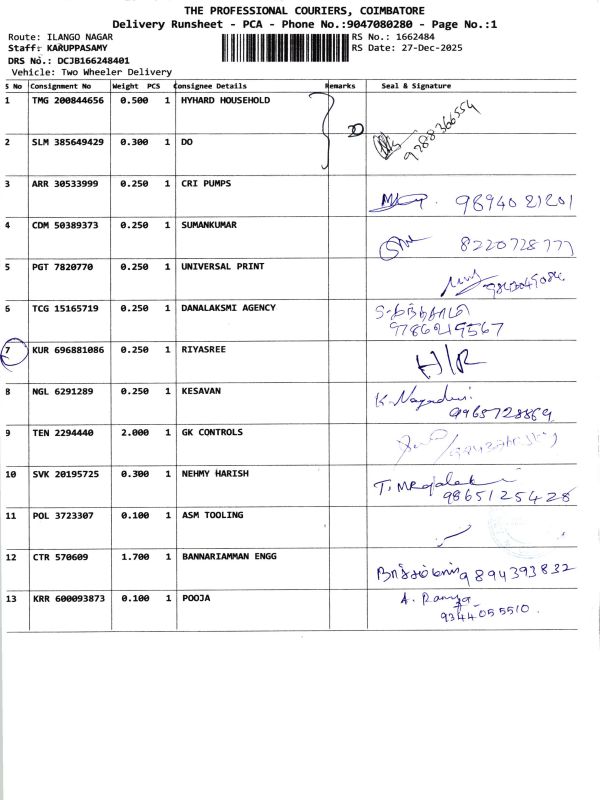 THE PROFESSIONAL COURIERS, COIMBATORE
Delivery Runsheet - PCA - Phone No.:9047080280 - Page No.:1
Route: ILANGO NAGAR RS No.: 1662484
Staff: KARUPPASAMY RS Date: 27-Dec-2025
DRS No.: DCJB166248401
Vehicle: Two Wheeler Delivery
S No Consignment No Weight PCS Consignee Details Remarks Seal & Signature
1 TMG 200844656 0.500 1 HYHARD HOUSEHOLD
9788366554
2 SLM 385649429 0.300 1 DO
3 ARR 30533999 0.250 1 CRI PUMPS
9894021201
4 CDM 50389373 0.250 1 SUMANKUMAR
8220728777
5 PGT 7820770 0.250 1 UNIVERSAL PRINT
6 TCG 15165719 0.250 1 DANALAKSMI AGENCY
9786219567
7 KUR 696881086 0.250 1 RIYASREE H/R
8 NGL 6291289 0.250 1 KESAVAN
9965728869
9 TEN 2294440 2.000 1 GK CONTROLS
10 SVK 20195725 0.300 1 NEHMY HARISH
9865125428
11 POL 3723307 0.100 1 ASM TOOLING
12 CTR 570609 1.700 1 BANNARIAMMAN ENGG
9894393832
13 KRR 600093873 0.100 1 POOJA A. Ramya
9344055510.